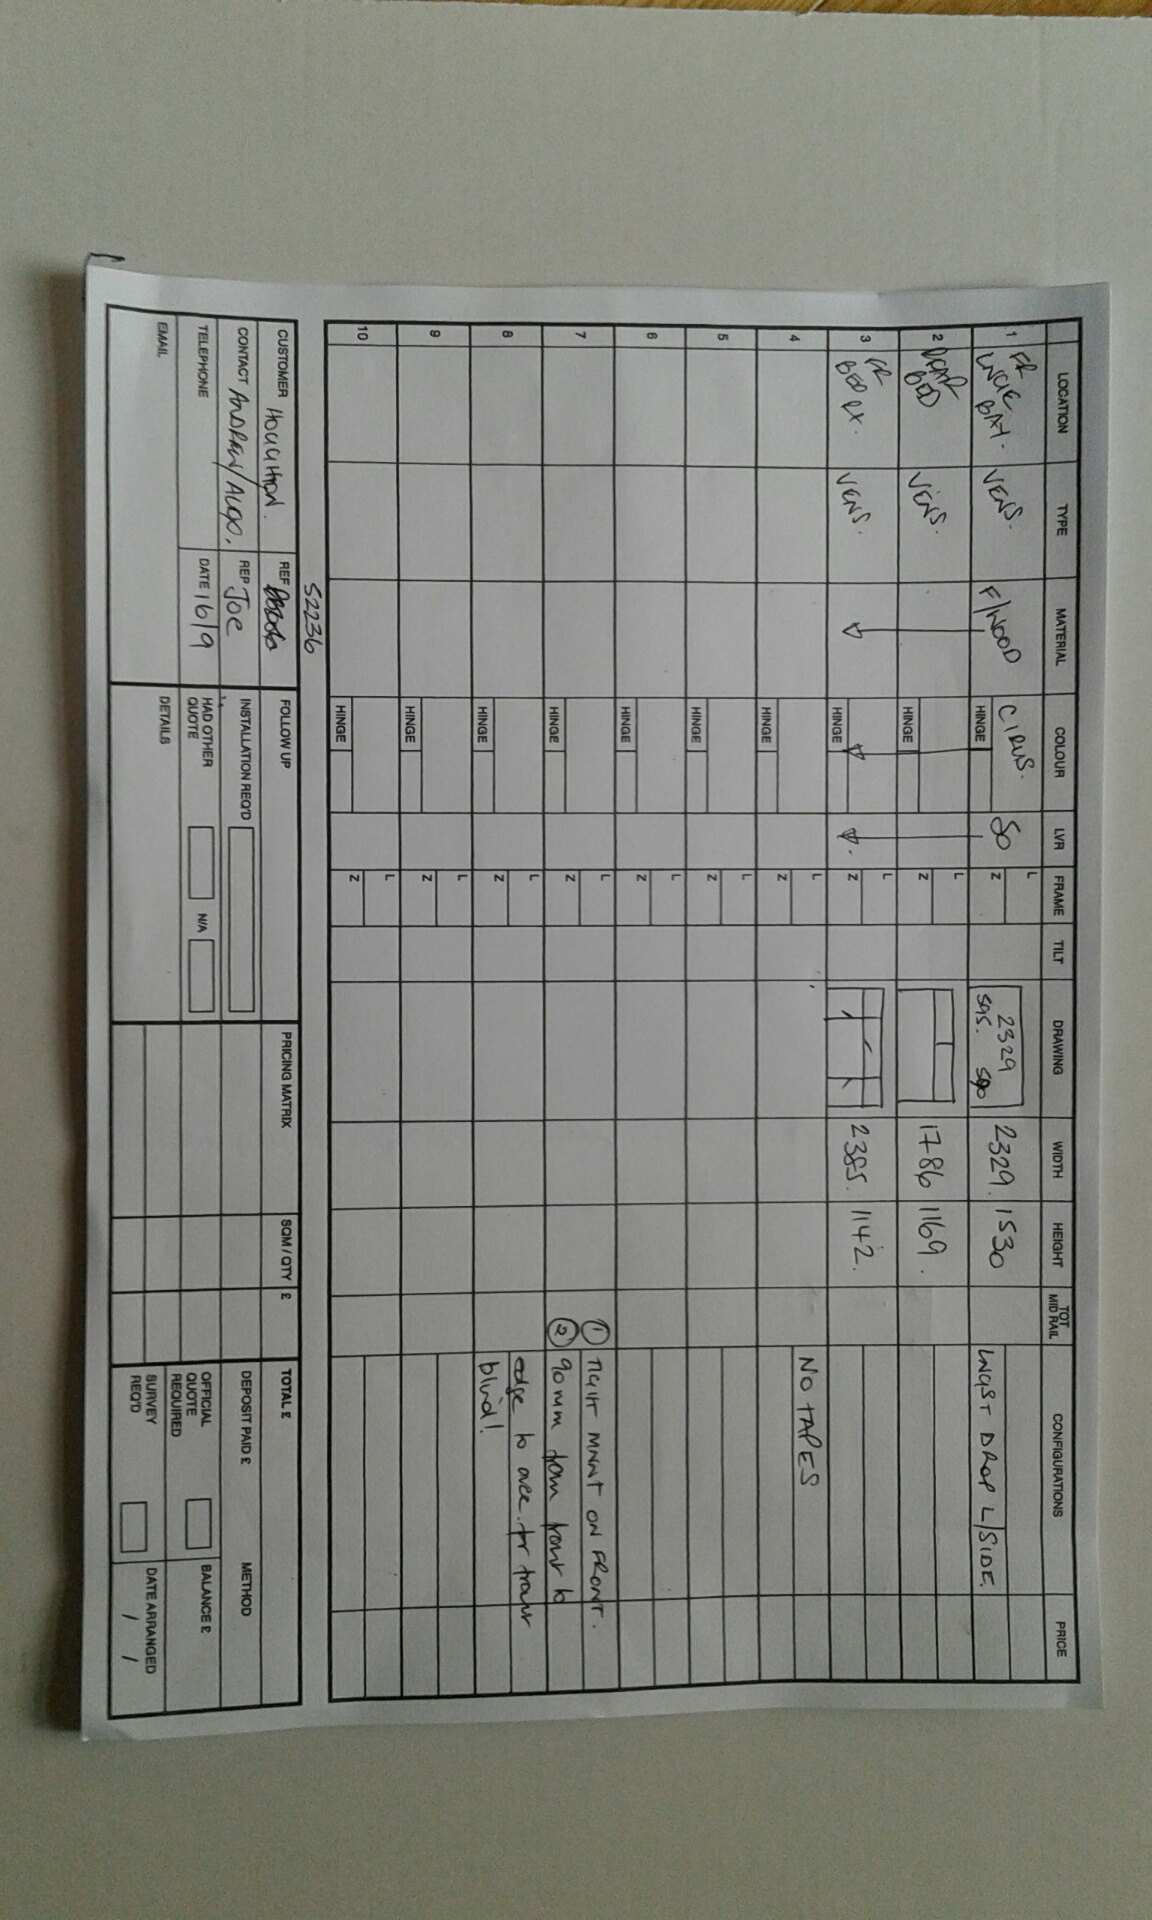 LOCATION TYPE MATERIAL COLOUR LVR FRAME TILT DRAWING WIDTH HEIGHT TOT MID RAIL CONFIGURATIONS PRICE
1 FR BAY. VENS. F/WOOD CIRUS. HINGE 50 L Z 2329 595. 590 2329. 1530 LNGST DROP L/SIDE.
2 REAR BED VENS. HINGE L Z 1786 1169.
3 FR BED VENS. HINGE L Z 2385. 1142.
4 HINGE L Z NO TAPES
5 HINGE L Z
6 HINGE L Z
7 HINGE L Z
① TIGHT MNNT ON FRONT.
② 90mm from front to
8 HINGE L Z
edge to
blind!
9 HINGE L Z
10 HINGE L Z
52236
CUSTOMER HOUGHTON. REF FOLLOW UP PRICING MATRIX SQM / QTY £ TOTAL £
CONTACT ANDREW/ REP JOE INSTALLATION REQ'D DEPOSIT PAID £ METHOD
TELEPHONE DATE 16/9 HAD OTHER QUOTE N/A OFFICIAL QUOTE REQUIRED BALANCE £
EMAIL DETAILS SURVEY REQ'D DATE ARRANGED / /